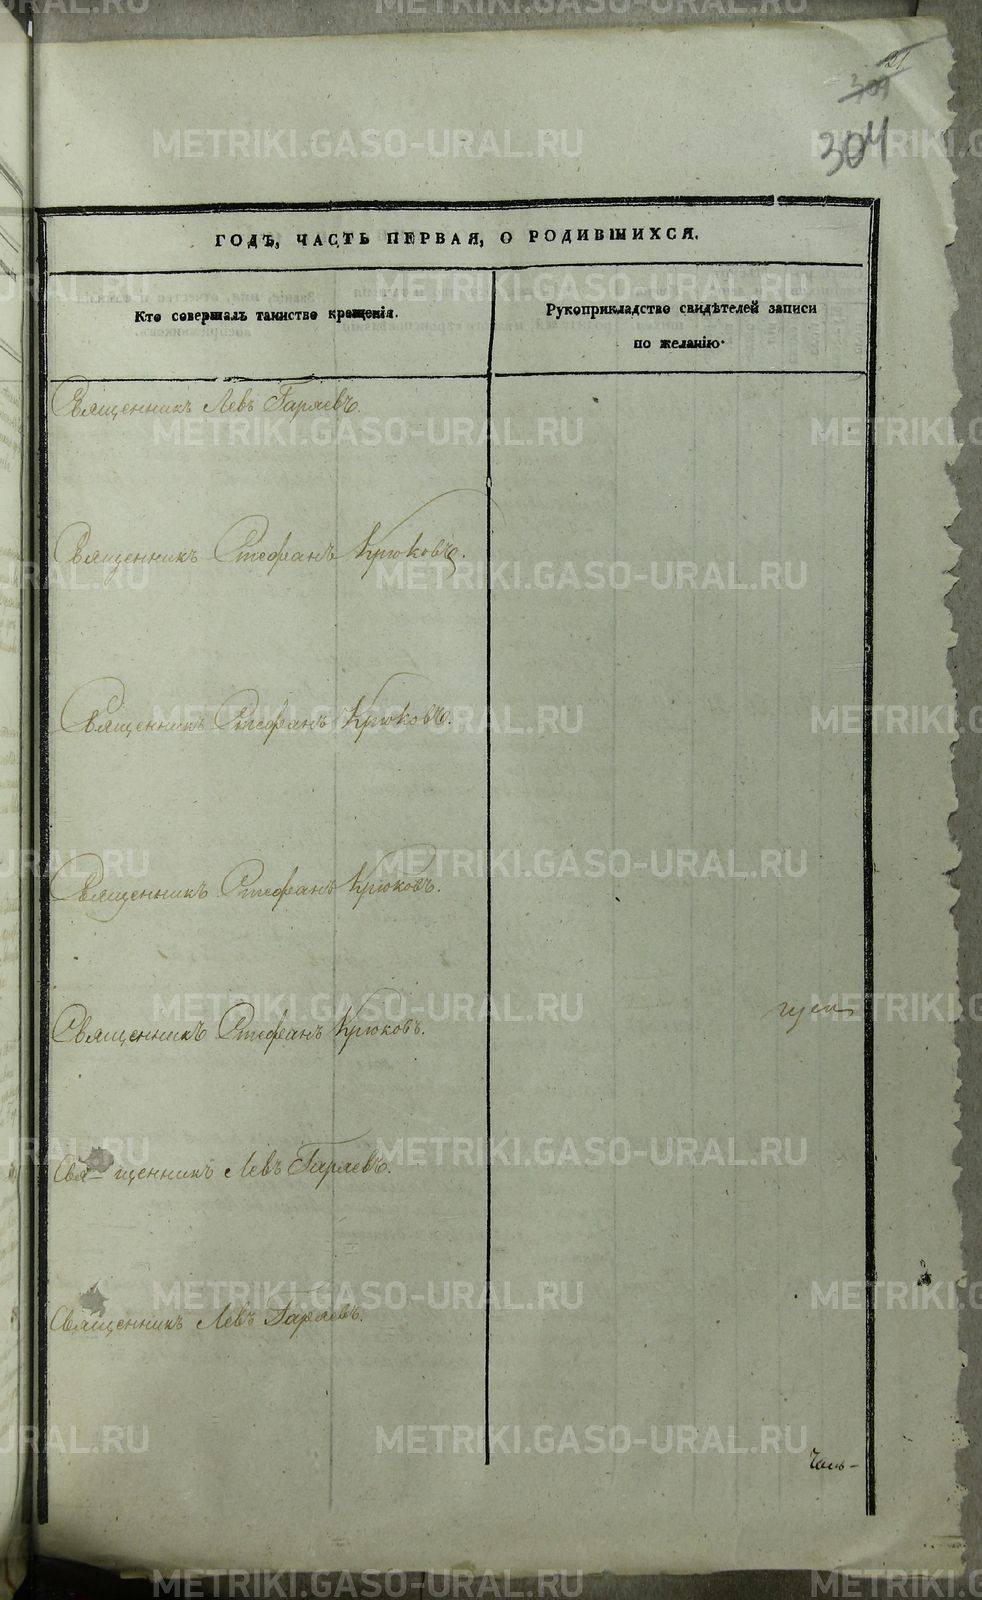 21
304
ГОДЪ, ЧАСТЬ ПЕРВАЯ, О РОДИВШИХСЯ.
Кто совершалъ таинство крещенія.
Рукоприкладство свидѣтелей записи
по желанію.
Священникъ Левъ Гаряевъ.
Священникъ Стефанъ Крюковъ.
Священникъ Стефанъ Крюковъ.
Священникъ Стефанъ Крюковъ.
Священникъ Стефанъ Крюковъ.
Свя- щенникъ Левъ Гаряевъ.
Священникъ Левъ Гаряевъ.
METRIKI.GASO-URAL.RU